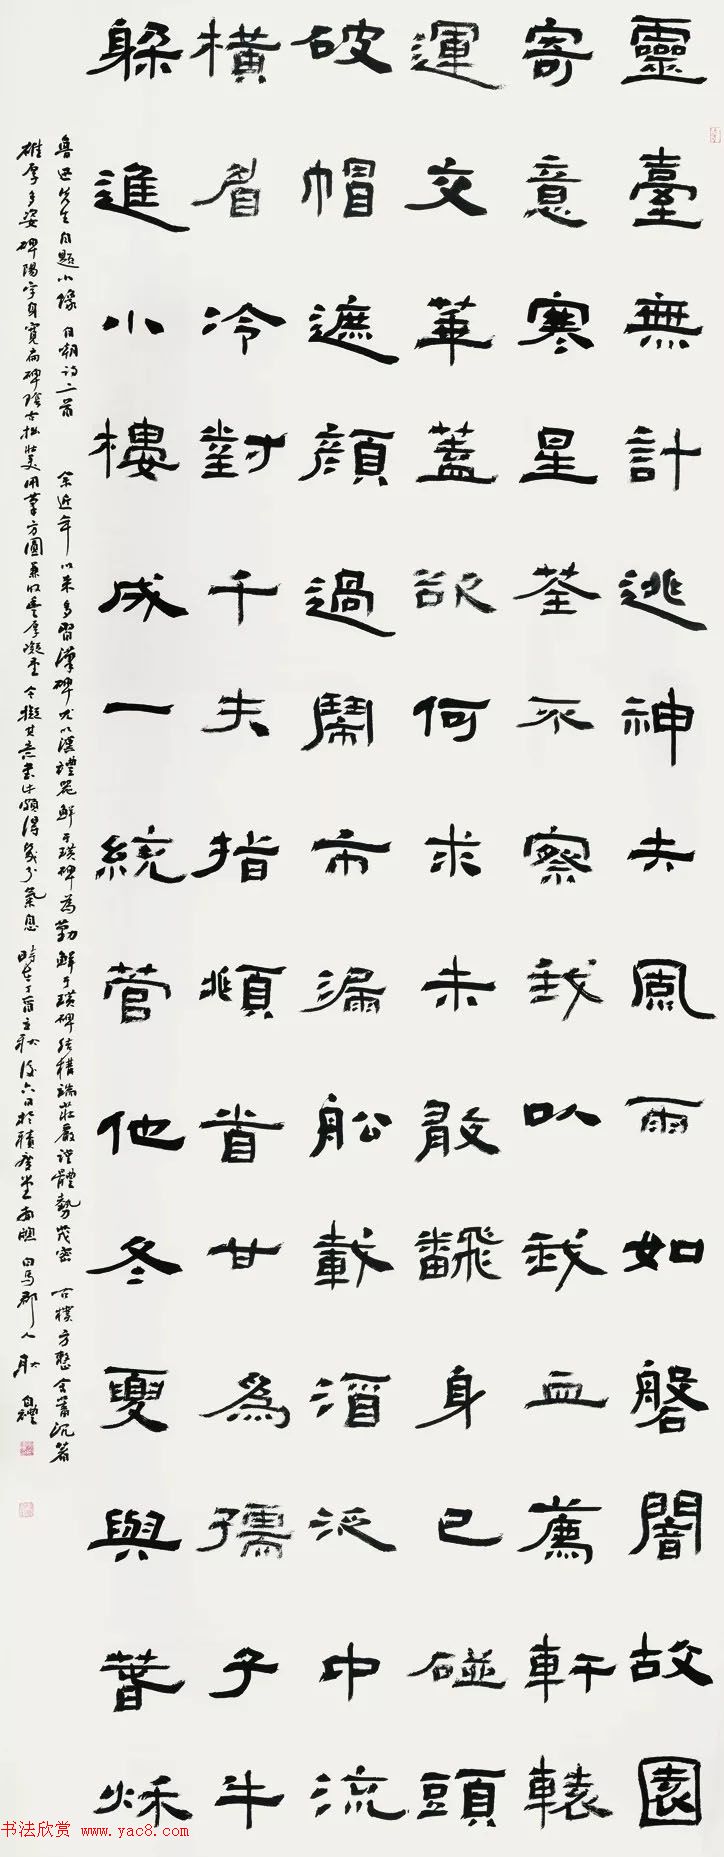 靈臺無計逃神矢風雨如磐闇故園
寄意寒星荃不察我以我血薦軒轅
運交華蓋欲何求未敢翻身已碰頭
破帽遮顏過鬧市漏船載酒泛中流
橫眉冷對千夫指頫首甘為孺子牛
躲進小樓成一統管他冬夏與春秌
魯迅先生自題小像自嘲詩二首 余近年以來多習漢碑尤以漢禮器鮮于璜碑為勤鮮于璜碑結構端莊嚴謹體勢茂密古樸方整含蓄沉着
雄厚多姿碑陽字身寬扁碑陰古拙壯美用筆方圓兼收豐厚凝重今擬其意書此頗得幾分氣息 時在丁酉立秋後六日於堂南牕白馬郡人耿自禮
书法欣赏 www.yac8.com